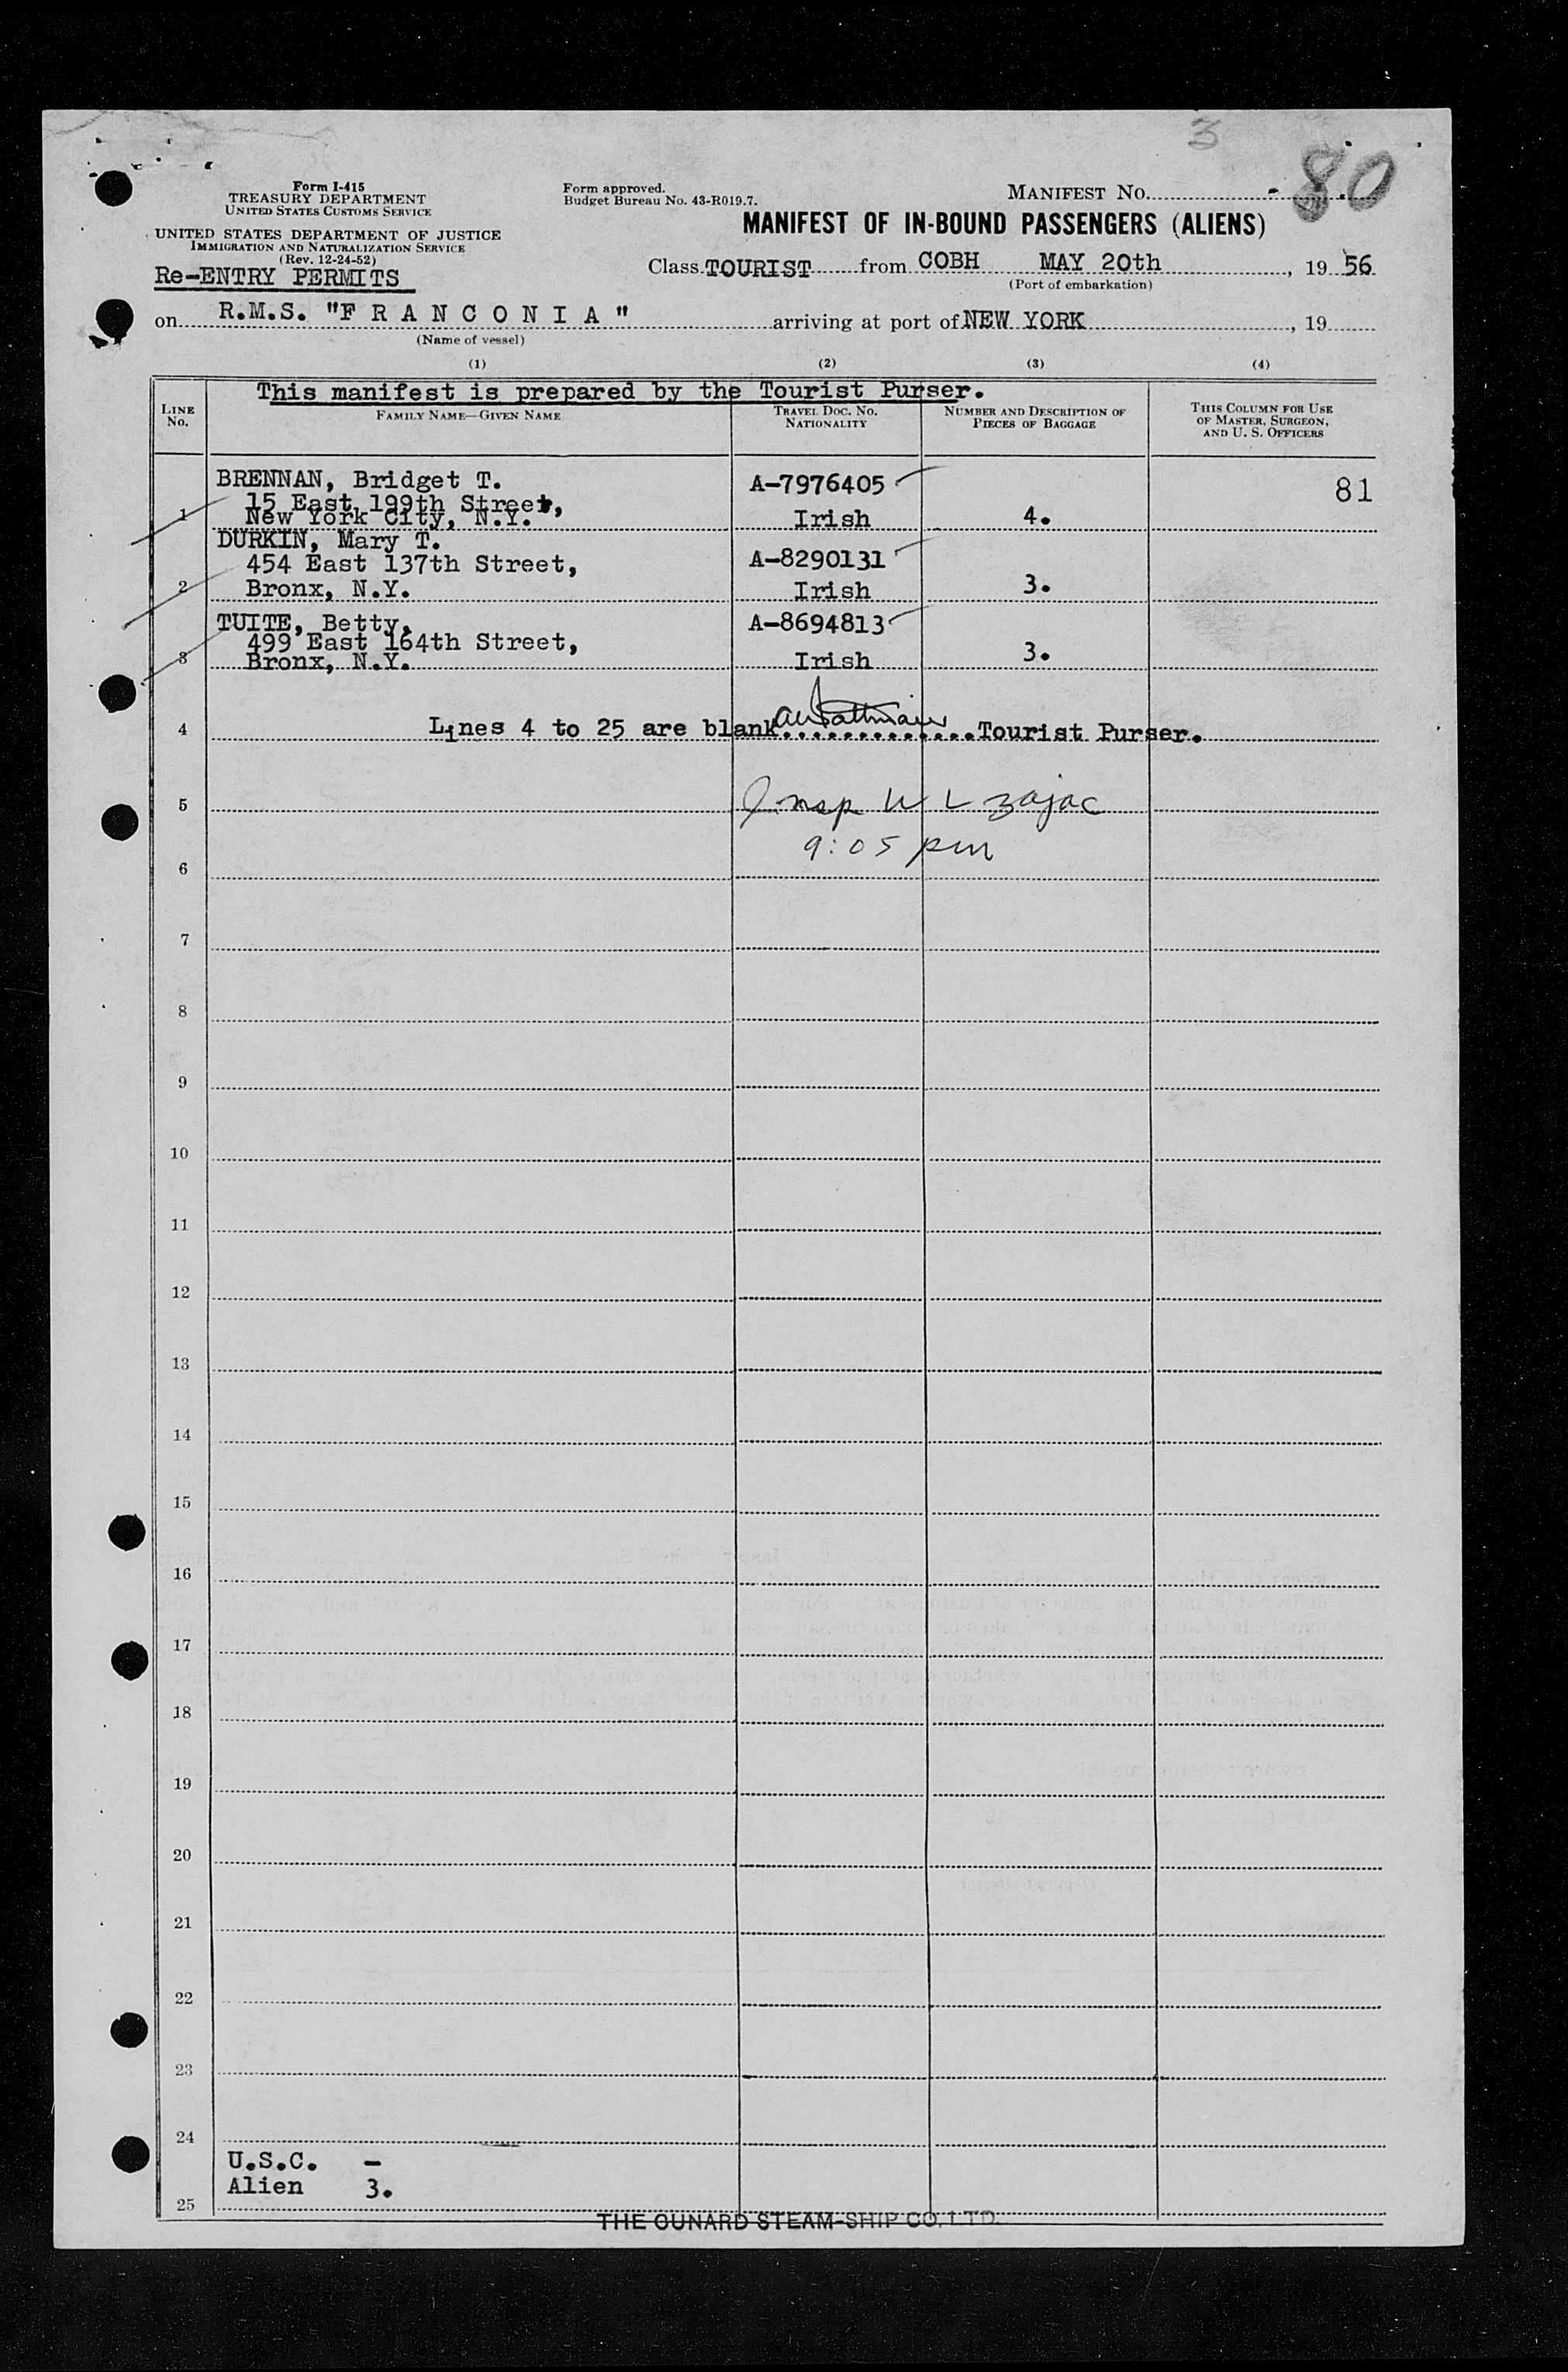 3
80
Form I-415
TREASURY DEPARTMENT
UNITED STATES CUSTOMS SERVICE
UNITED STATES DEPARTMENT OF JUSTICE
IMMIGRATION AND NATURALIZATION SERVICE
(Rev. 12-24-52)
Re-ENTRY PERMITS
Form approved.
Budget Bureau No. 43-R019.7.
MANIFEST NO.
MANIFEST OF IN-BOUND PASSENGERS (ALIENS)
Class TOURIST from COBH MAY 20th, 19 56
(Port of embarkation)
on R.M.S. "F R A N C O N I A" arriving at port of NEW YORK, 19
(Name of vessel)
(1) (2) (3) (4)
This manifest is prepared by the Tourist Purser.
LINE No. FAMILY NAME—GIVEN NAME TRAVEL DOC. NO. NATIONALITY NUMBER AND DESCRIPTION OF PIECES OF BAGGAGE THIS COLUMN FOR USE OF MASTER, SURGEON, AND U. S. OFFICERS
BRENNAN, Bridget T. A-7976405 81
15 East 199th Street,
1 New York City, N.Y. Irish 4.
DURKIN, Mary T.
454 East 137th Street, A-8290131
2 Bronx, N.Y. Irish 3.
TUITE, Betty, A-8694813
499 East 164th Street,
3 Bronx, N.Y. Irish 3.
4 Lines 4 to 25 are blank.............Tourist Purser.
5 Insp W L Zajac
9:05 pm
6
7
8
9
10
11
12
13
14
15
16
17
18
19
20
21
22
23
24
U.S.C. -
Alien 3.
25
THE CUNARD STEAM-SHIP CO. LTD.